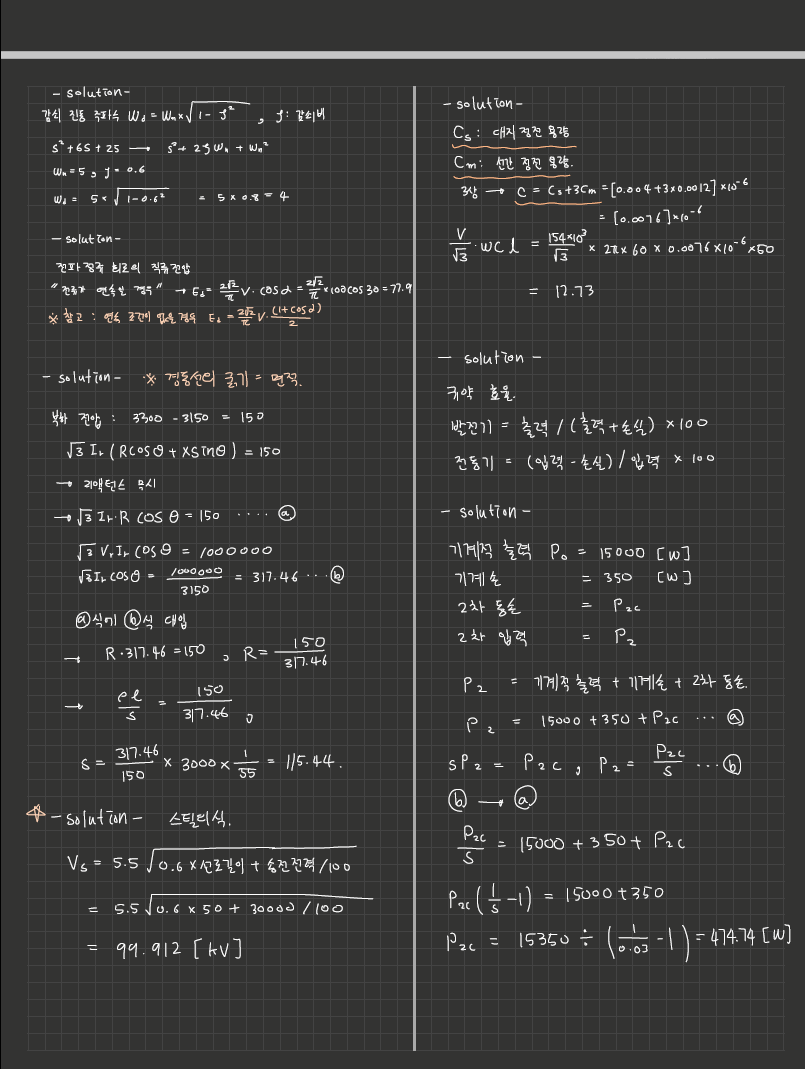 - solution -
감쇠 진동 주파수 Wd = Wn×√1-ζ² , ζ: 감쇠비
s²+6s+25 → s²+2ζWn+Wn²
Wn=5, ζ=0.6
Wd = 5×√1-0.6² = 5×0.8=4
- solution -
전파정류 회로의 직류전압
"전류가 연속인 경우" → Ed = 2√2/π V·cosα = 2√2/π ×100cos30=77.9
※ 참고 : 연속 조건이 없을경우 Ed = 2√2/π V·(1+cosα)/2
- solution - ※ 경동선의 굵기 = 면적.
부하 전압 : 3300 - 3150 = 150
√3 Ir (Rcosθ + Xsinθ) = 150
→ 리액턴스 무시
→ √3 Ir·R cosθ = 150 ···· ⓐ
√3 Vr Ir cosθ = 1000000
√3 Ir cosθ = 1000000/3150 = 317.46 ··· ⓑ
ⓐ식에 ⓑ식 대입
→ R·317.46 = 150 , R = 150/317.46
→ ρl/s = 150/317.46 ,
S = 317.46/150 × 3000 × 1/55 = 115.44.
☆ - solution - 스틸의식.
Vs = 5.5 √0.6×선로길이 + 송전전력/100
= 5.5 √0.6 × 50 + 30000 / 100
= 99.912 [kV]
- solution -
Cs : 대지정전 용량
Cm : 선간 정전 용량.
3상 → C = Cs+3Cm = [0.004+3×0.0012]×10⁻⁶
= [0.0076]×10⁻⁶
V/√3 · WCl = 154×10³/√3 × 2π× 60 × 0.0076×10⁻⁶×50
= 12.73
- solution -
규약 효율.
발전기 = 출력 / (출력+손실) × 100
전동기 = (입력 - 손실) / 입력 × 100
- solution -
기계적 출력 Po = 15000 [W]
기계손 = 350 [W]
2차 동손 = P2c
2차 입력 = P2
P2 = 기계적출력 + 기계손 + 2차 동손.
P2 = 15000 + 350 + P2c ··· ⓐ
sP2 = P2c , P2 = P2c/s ··· ⓑ
ⓑ → ⓐ
P2c/s = 15000 + 350 + P2c
P2c(1/s - 1) = 15000 + 350
P2c = 15350 ÷ (1/0.03 - 1) = 474.74 [W]